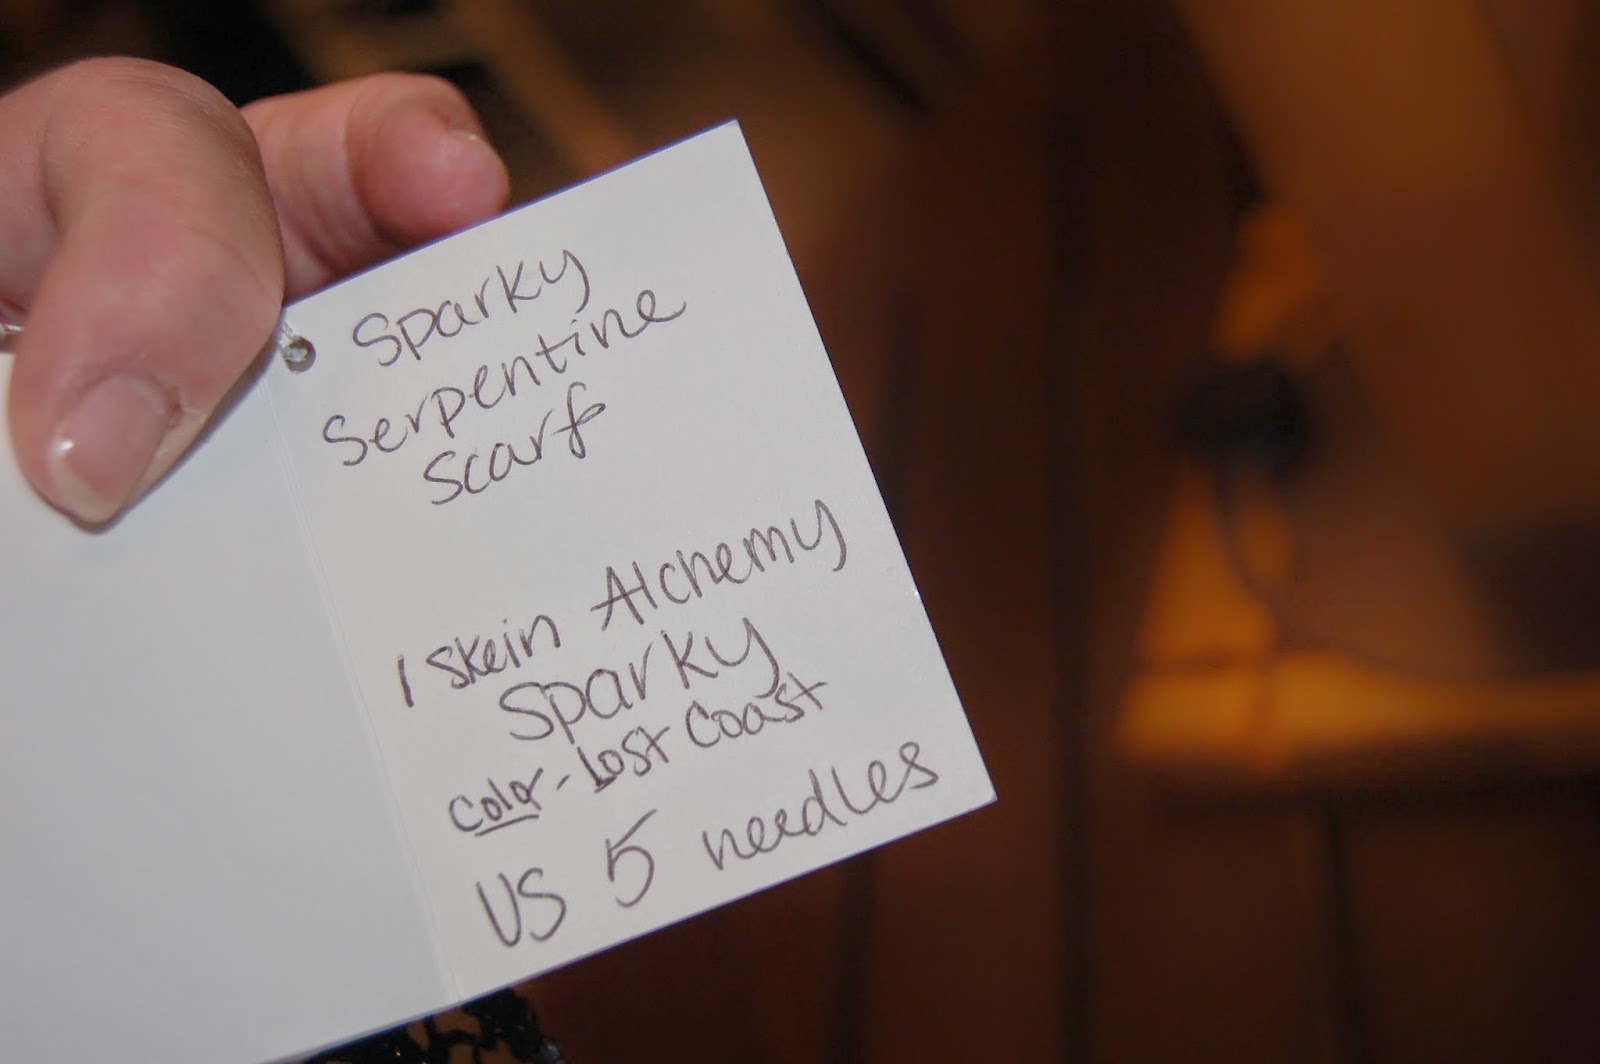 Sparky
Serpentine
Scarf
1 skein Alchemy
Sparky
color - Lost Coast
US 5 needles